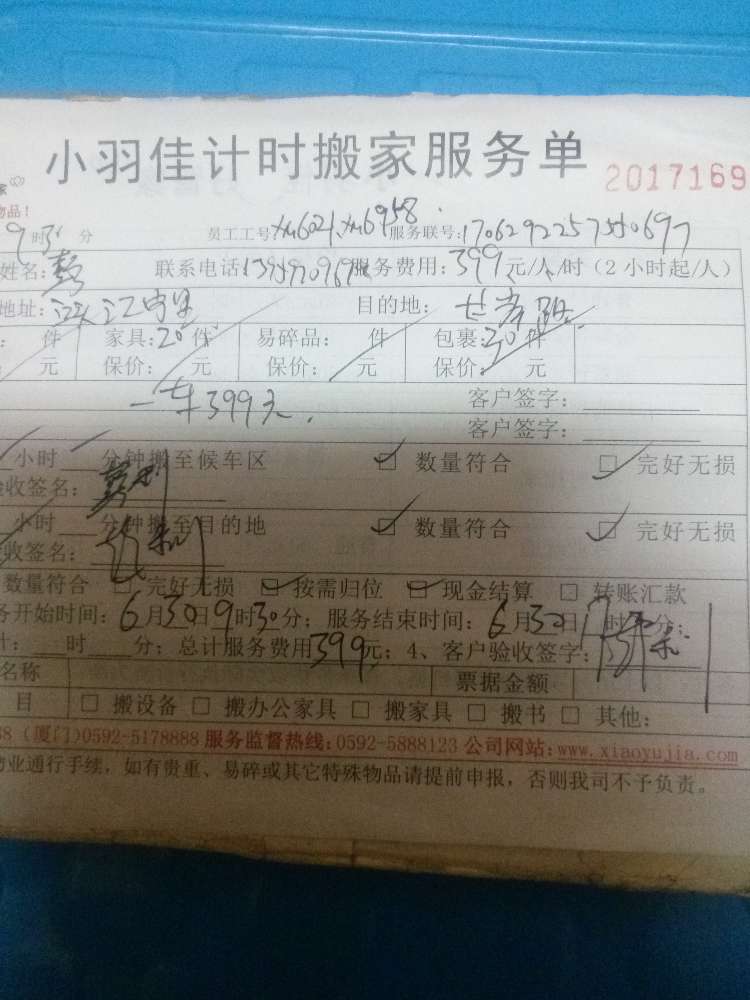 小羽佳计时搬家服务单 2017169
物品!
9时30分 员工工号: 服务联号:
姓名: 联系电话 服务费用:399元/人/时(2小时起/人)
地址: 目的地:
件 家具:20件 易碎品: 件 包裹:30件
元 保价: 元 保价: 元 保价: 元
一车399元.
客户签字:
客户签字:
小时 分钟搬至候车区 ☑ 数量符合 ☑ 完好无损
验收签名:
小时 分钟搬至目的地 ☑ 数量符合 ☑ 完好无损
收签名:
数量符合 □ 完好无损 ☑ 按需归位 ☑ 现金结算 □ 转账汇款
务开始时间:6月30日9时30分;服务结束时间:6月30日 时 分;
计: 时 分;总计服务费用399元;4、客户验收签字:
名称 票据金额
目 □ 搬设备 □ 搬办公家具 □ 搬家具 □ 搬书 □ 其他:
(厦门)0592-5178888 服务监督热线:0592-5888123 公司网站:www.xiaoyujia.com
物业通行手续,如有贵重、易碎或其它特殊物品请提前申报,否则我司不予负责。